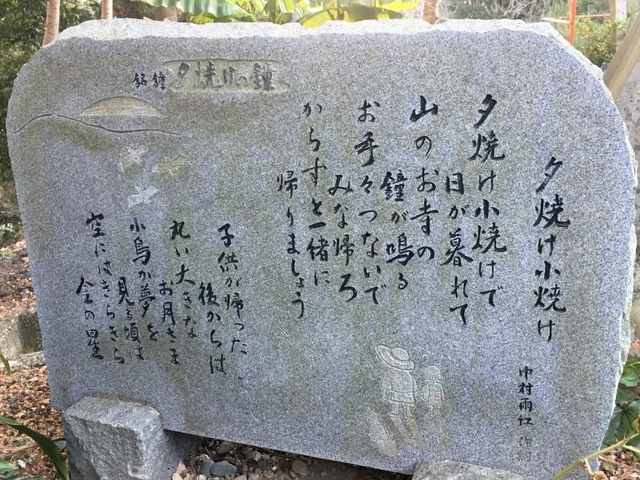 夕焼け小焼け
中村雨紅
夕焼け小焼けで
日が暮れて
山のお寺の
鐘が鳴る
お手々つないで
みな帰ろ
からすと一緒に
帰りましょう
子供が帰った
後からは
丸い大きな
お月さま
小鳥が夢を
見る頃は
空にはきらきら
金の星
夕焼けの鐘
銘鐘